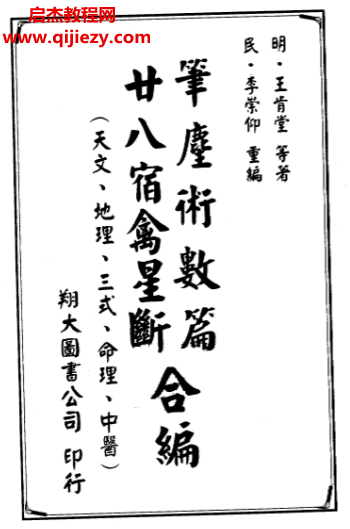 启杰教程网
www.qijiezy.com
明·王肯堂 等著
民·李崇仰 重編
筆塵術數篇
廿八宿禽星斷
合編
(天文、地理、三式、命理、中醫)
翔大圖書公司 印行